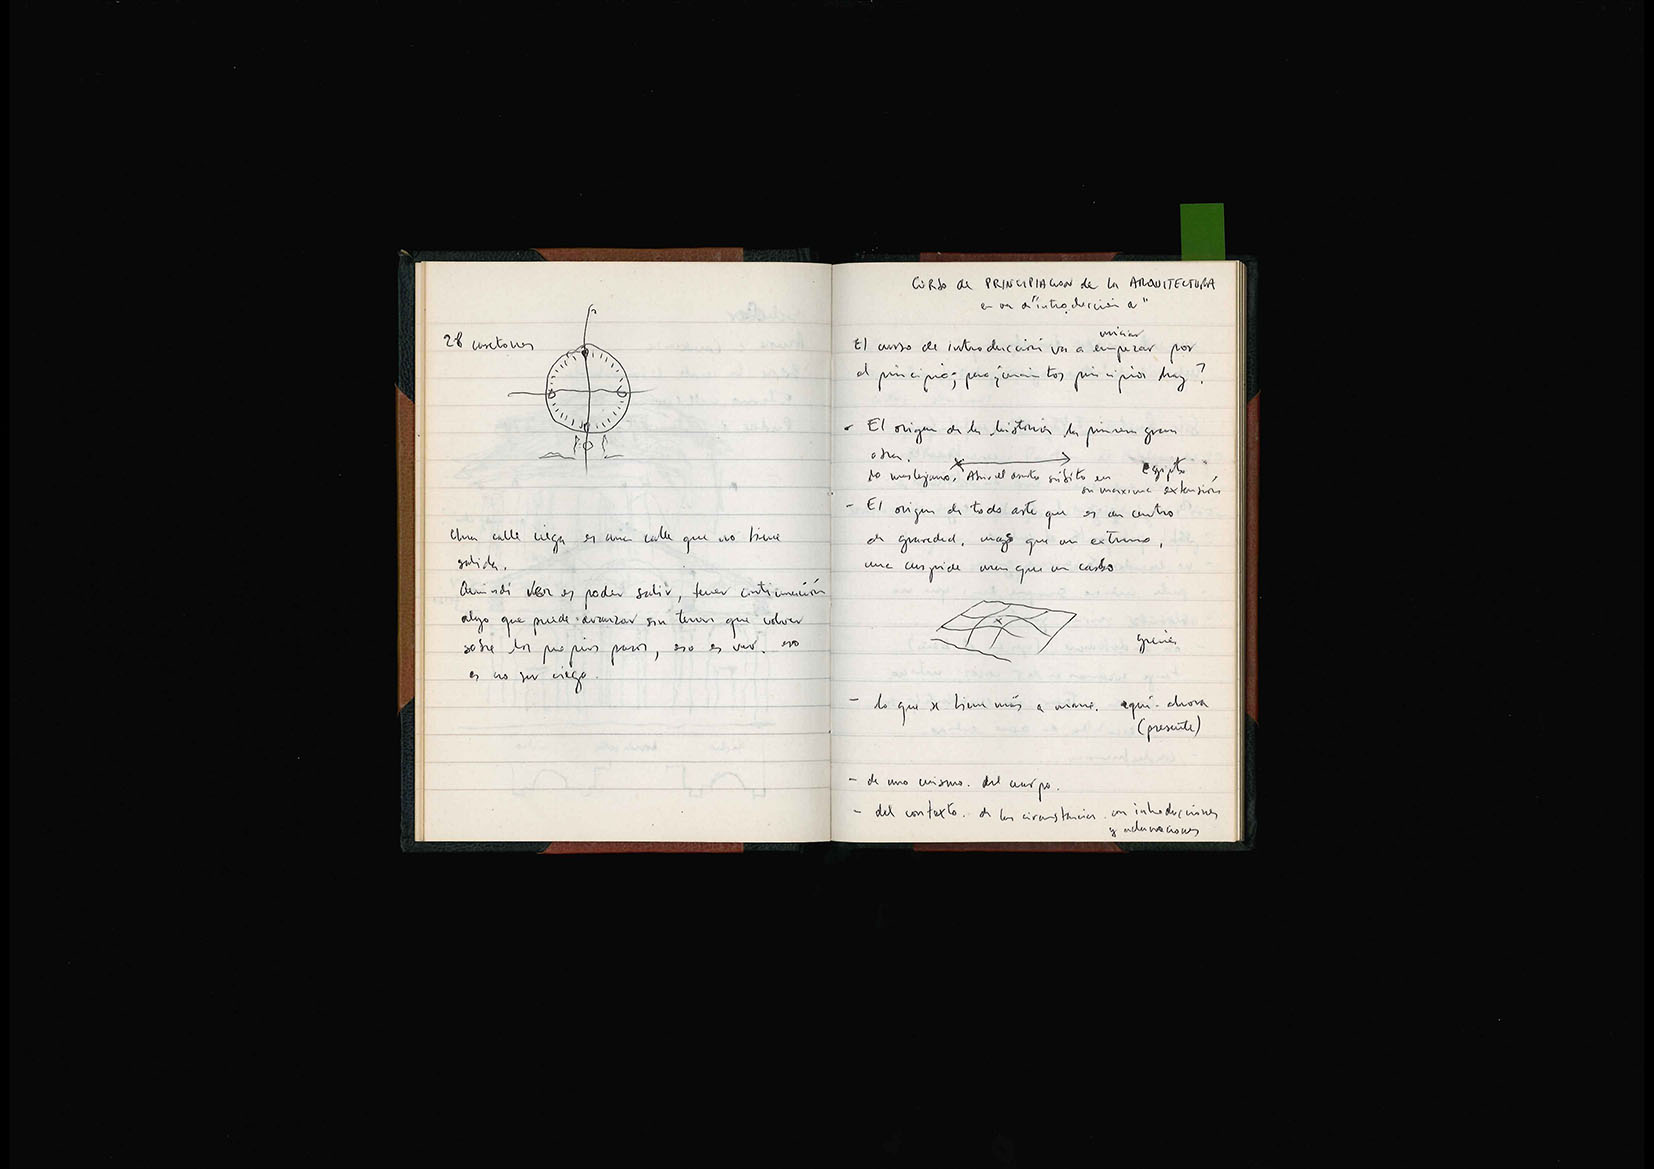 28 casetones
Una calle ciega es una calle que no tiene
salida.
ver es poder salir, tener continuación
algo que puede avanzar sin tener que volver
sobre los propios pasos, eso es ver. eso
es no ser ciego.
CURSO de PRINCIPIACION de la ARQUITECTURA
en vez de "introducción a"
iniciar
El curso de introducción va a empezar por
el principio; pero ¿cuántos principios hay?
- El origen de la historia la primera gran
obra.
lo mas lejano. súbito en egipto
su maxima extensión
- El origen de todo arte que es un centro
de gravedad, mas que un extremo,
una cuspide mas que un
grecia
- lo que se tiene más a mano. aquí. ahora
(presente)
- de uno mismo. del cuerpo.
- del contexto. de las circunstancias. con introducciones
y